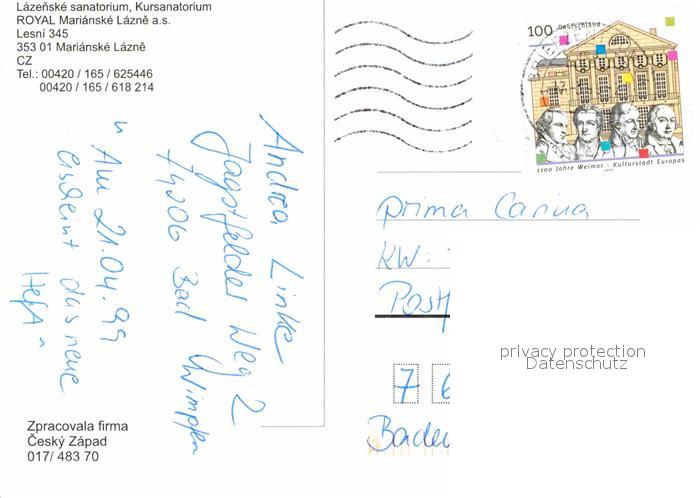 Lázeňské sanatorium, Kursanatorium
ROYAL Mariánské Lázně a.s.
Lesní 345
353 01 Mariánské Lázně
CZ
Tel.: 00420 / 165 / 625446
00420 / 165 / 618 214
Andrea Linke
Jagstfelder Weg 2
74206 Bad Wimpfen
" Am 21.04.99
erscheint das neue
Heft "
Zpracovala firma
Český Západ
017/ 483 70
100 Deutschland
1100 Jahre Weimar - Kulturstadt Europas
1999
prima Carina
KW:
Post
7 6
Baden
privacy protection
Datenschutz